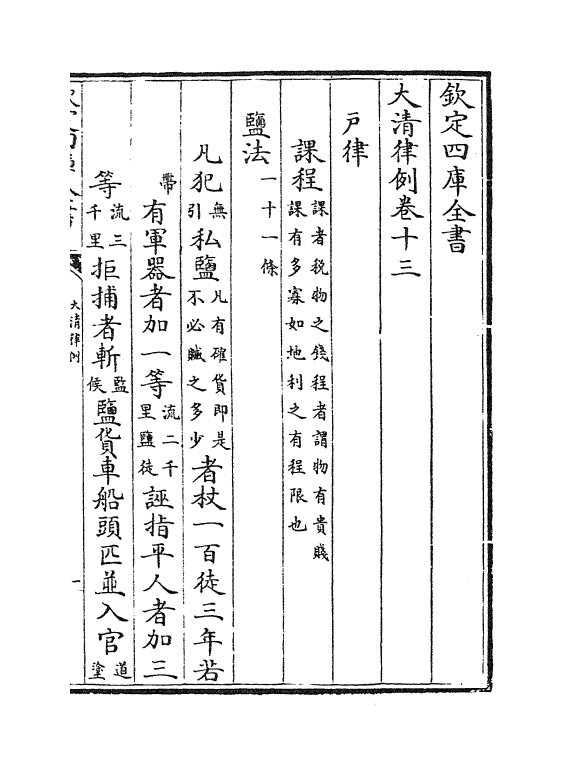 欽定四庫全書
大清律例卷十三
戶律
課程課者税物之錢程者謂物有貴賤課有多寡如地利之有程限也
鹽法一十一條
凡犯無引私鹽凡有確貨即是不必贓之多少者杖一百徒三年若
帶有軍器者加一等流二千里鹽徒誣指平人者加三
等流三千里拒捕者斬監候鹽貨車船頭匹並入官道塗
大清律例
一